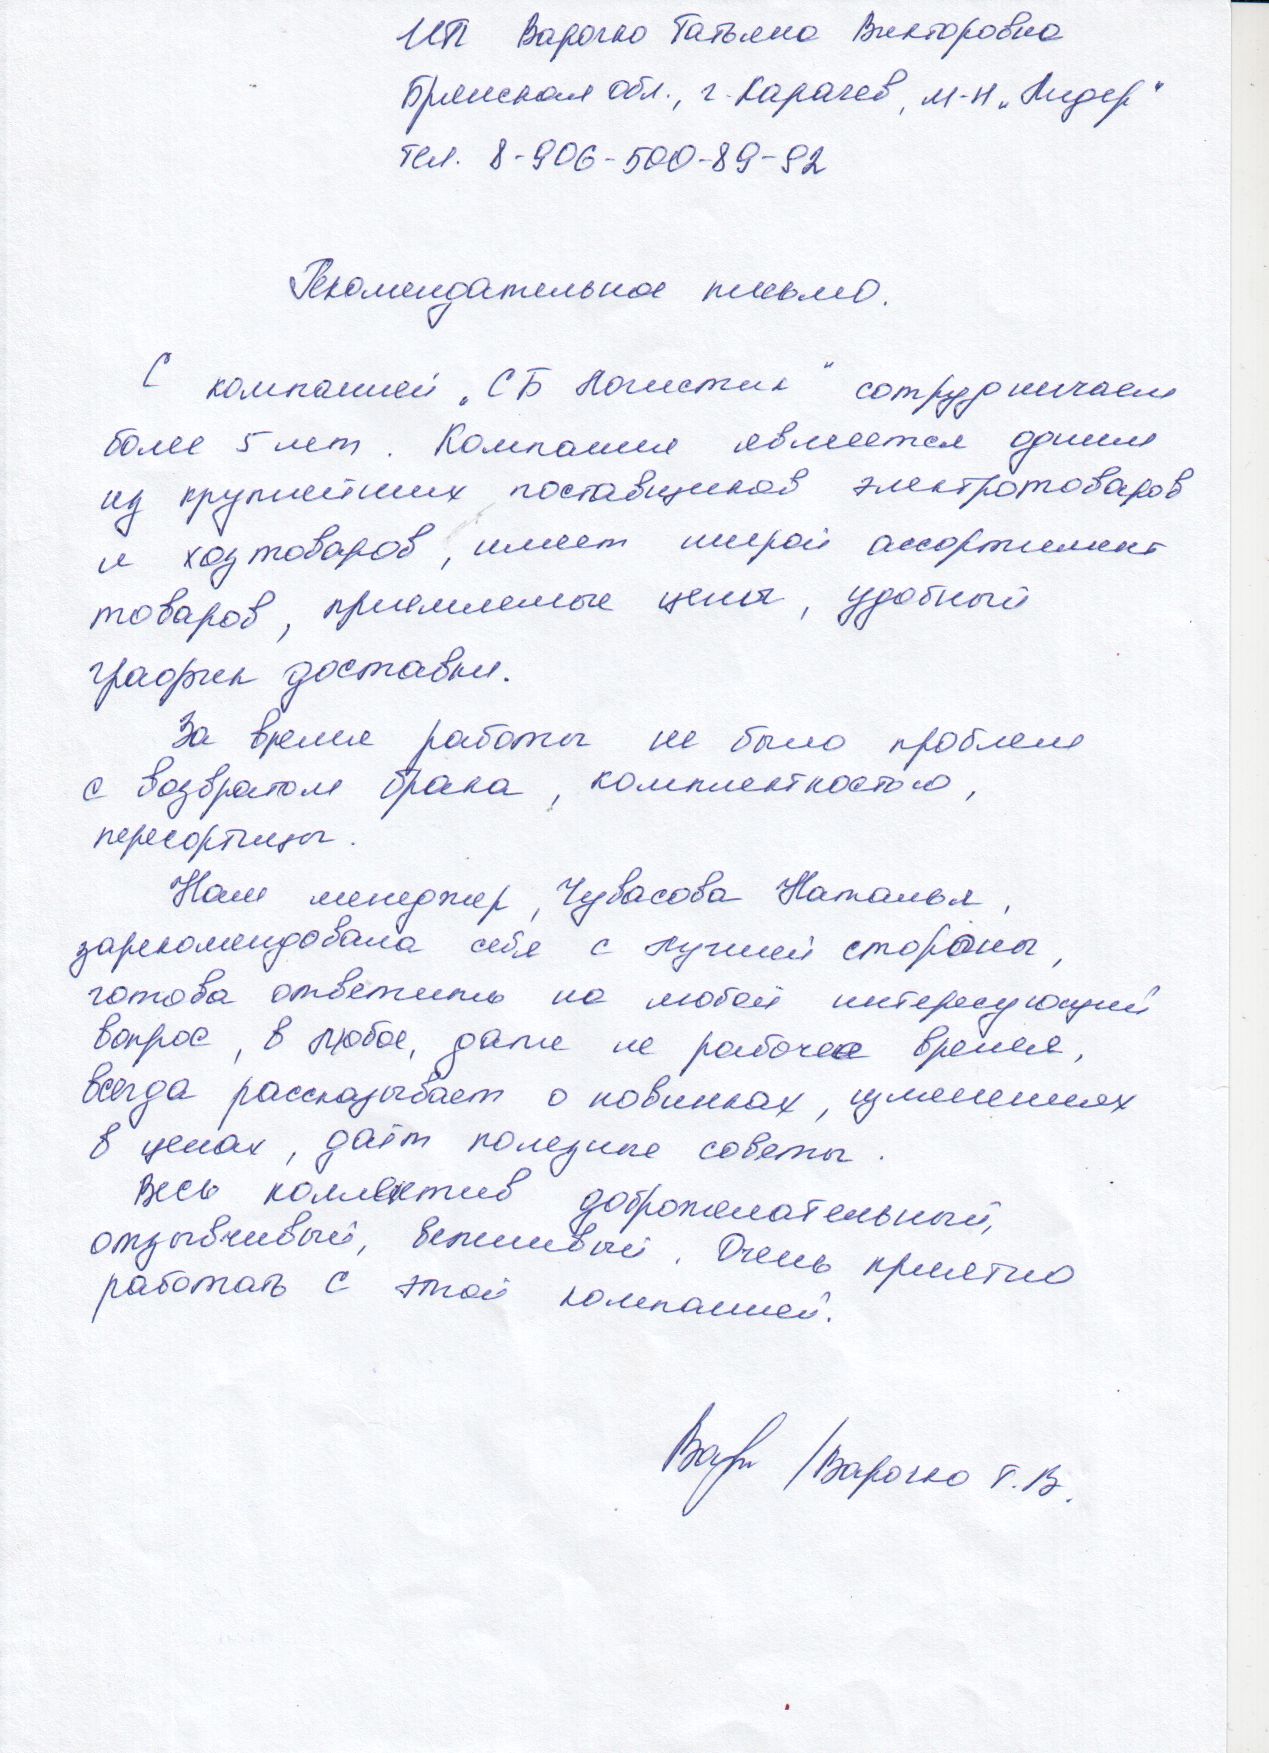 ИП Варочко Татьяна Викторовна
Брянская обл., г. Карачев, м-н „Лидер"
тел. 8-906-500-89-92
Рекомендательное письмо.
С компанией „СБ Логистик" сотрудничаем
более 5 лет. Компания является одним
из крупнейших поставщиков электротоваров
и хозтоваров, имеет широй ассортимент
товаров, приемлемые цены, удобный
график доставки.
За время работы не было проблем
с возвратом брака, комплектностью,
пересортицы.
Наш менеджер, Чувасова Наталья,
зарекомендовала себя с лучшей стороны,
готова ответить на любой интересующий
вопрос, в любое, даже не рабочее время,
всегда рассказывает о новинках, изменениях
в ценах, даёт полезные советы.
Весь коллектив доброжелательный,
отзывчивый, вежливый. Очень приятно
работать с этой компанией.
/Варочко Т.В.